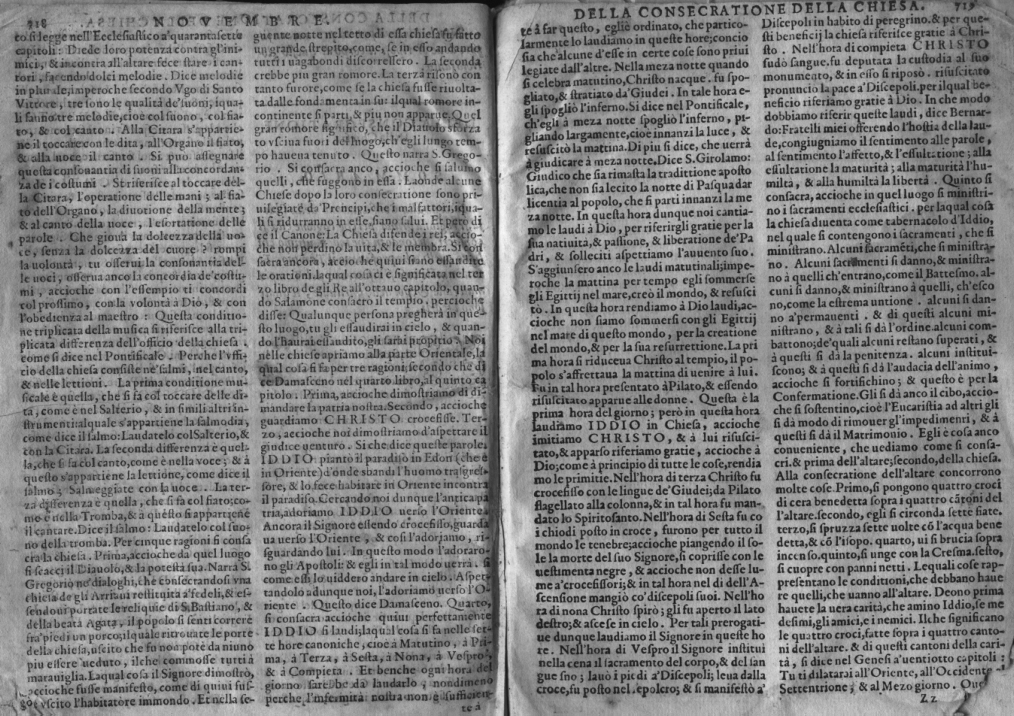 718
NOVEMBRE.
to si legge nell'Ecclesiastico a'quarantasette
capitoli: Diede loro potenza contra gl'ini-
mici, & incontra all'altare fece stare i can-
tori, facendo dolci melodie. Dice melodie
in plurale, imperoche secondo Vgo di Santo
Vittore, tre sono le qualità de'suoni, iqua-
li fanno tre melodie, cioè col suono, col fia-
to, & col canto. Alla Citara s'appartie-
ne il toccare con le dita, all'Organo il fiato,
& alla uoce il canto. Si può assegnare
questa consonantia di suoni alla concordan-
za de i costumi. Si riferisce al toccare del-
la Citara, l'operatione delle mani; al fia-
to dell'Organo, la diuotione della mente;
& al canto della uoce, l'esortatione delle
parole. Che gioua la dolcezza della uo-
ce, senza la dolcezza del cuore? rompi
la uolontà, tu osserui la consonantia del-
le uoci, osserua anco la concordia de'costu-
mi, accioche con l'essempio ti concordi
col prossimo, con la volontà à Dio, & con
l'obedienza al maestro: Questa conditio-
ne triplicata della musica si riferisce alla tri-
plicata differenza dell'officio della chiesa.
come si dice nel Pontificale. Perche l'vffi-
cio della chiesa consiste ne'salmi, nel canto,
& nelle lettioni. La prima conditione mu-
sicale è quella, che si fa col toccare delle di-
ta, come è nel Salterio, & in simili altri in-
strumenti: alquale s'appartiene la salmodia,
come dice il salmo: Laudatelo col Salterio, &
con la Citara. La seconda differenza è quel-
la, che si fa col canto, come è nella voce; & à
questo s'appartiene la lettione, come dice il
salmo; Salmeggiate con la uoce. La ter-
za differenza è quella, che si fa col fiato: co-
me è nella Tromba, & à questo si appartiene
il cantare. Dice il salmo: Laudatelo col suo-
no della tromba. Per cinque ragioni si consa
cra la chiesa. Prima, accioche da quel luogo
si scacci il Diauolo, & la potestà sua. Narra S.
Gregorio ne'dialoghi, che consecrandosi vna
chiesa de gli Arriani restituita a'fedeli, & es-
sendoui portate le reliquie di S. Bastiano, &
della beata Agata, il popolo si sentì correre
fra'piedi un porco; ilquale ritrouate le porte
della chiesa, uscito che fu non potè da niuno
piu essere ueduto, ilche commosse tutti à
marauiglia. Laqual cosa il Signore dimostrò,
accioche fusse manifesto, come di quiui fus-
se vscito l'habitatore immondo. Et nella se-
guente notte nel tetto di essa chiesa fu fatto
un grande strepito, come, se in esso andando
tutti i uagabondi discorressero. La seconda
crebbe piu gran romore. La terza risonò con
tanto furore, come se la chiesa fusse riuolta-
ta dalle fondamenta in su: ilqual romore in-
continente si partì, & piu non apparue. Quel
gran romore significò, che il Diauolo sforza
to vsciua fuori del luogo, ch'egli lungo tem-
po haueua tenuto. Questo narra S. Grego-
rio. Si consacra anco, accioche si saluino
quelli, che fuggono in essa. Laonde alcune
Chiese dopo la loro consecratione sono pri-
uilegiate da'Prencipi, che i malfattori, iqua-
li si ridurranno in esse, siano salui. Et però di-
ce il Canone: La Chiesa difende i rei, accio-
che non perdino la uita, & le membra. Si con
sacra ancora, accioche quiui siano essaudite
le orationi. laqual cosa ci è significata nel ter
zo libro de gli Re all'ottauo capitolo, quan-
do Salamone consacrò il tempio. percioche
disse: Qualunque persona pregherà in que-
sto luogo, tu gli essaudirai in cielo, & quan-
do l'haurai essaudito, gli sarai propitio. A Noi
nelle chiese apriamo alla parte Orientale, la
qual cosa si fa per tre ragioni; secondo che di
ce Damasceno nel quarto libro, al quinto ca-
pitolo. Prima, accioche dimostriamo di di-
mandare la patria nostra. Secondo, accioche
guardiamo CHRISTO crocefisso. Ter-
zo, accioche noi dimostriamo d'aspettare il
giudice uenturo. Si che dice queste parole:
IDDIO piantò il paradiso in Edon (che è
in Oriente) d'onde sbandì l'huomo trasgres-
sore, & lo fece habitare in Oriente incontra
il paradiso. Cercando noi dunque l'antica pa
tria, adoriamo IDDIO uerso l'Oriente.
Ancora il Signore essendo crocefisso, guarda
ua uerso l'Oriente, & così l'adoriamo, ri-
sguardando lui. In questo modo l'adoraro-
no gli Apostoli: & egli in tal modo uerrà. si
come essi lo uiddero andare in cielo. Aspet-
tandolo adunque noi, l'adoriamo uerso l'O-
riente. Questo dice Damasceno. Quarto,
si consacra accioche quiui perfettamente
IDDIO si laudi; laqual cosa si fa nelle set-
te hore canoniche, cioè à Matutino, à Pri-
ma, à Terza, à Sesta, à Nona, à Vespro,
& à Compieta. Et benche ogni hora del
giorno sarebbe da laudarlo, nondimeno
perche l'infermità nostra non è sufficien-
te à
DELLA CONSECRATIONE DELLA CHIESA.
719
te à far questo, egli è ordinato, che partico-
larmente lo laudiamo in queste hore; concio
sia che alcune d'esse in certe cose sono priui
legiate dall'altre. Nella meza notte quando
si celebra matutino, Christo nacque. fu spo-
gliato, & stratiato da'Giudei. In tale hora e-
gli spogliò l'inferno. Si dice nel Pontificale,
ch'egli à meza notte spogliò l'inferno, pi-
gliando largamente, cioè innanzi la luce, &
resuscitò la mattina. Di piu si dice, che uerrà
à giudicare à meza notte. Dice S. Girolamo:
Giudico che sia rimasta la traditione aposto
lica, che non sia lecito la notte di Pasqua dar
licentia al popolo, che si parti innanzi la me
za notte. In questa hora dunque noi cantia-
mo le laudi à Dio, per riferirgli gratie per la
sua natiuità, & passione, & liberatione de'Pa
dri, & solleciti aspettiamo l'auuento suo.
S'aggiunsero anco le laudi matutinali; impe-
roche la mattina per tempo egli sommerse
gli Egittij nel mare, creò il mondo, & resusci
tò. In questa hora rendiamo à Dio laudi, ac-
cioche non siamo sommersi con gli Egittij
nel mare di questo mondo, per la creatione
del mondo, & per la sua resurrettione. La pri
ma hora si riduceua Christo al tempio, il po-
polo s'affrettaua la mattina di uenire à lui.
Fu in tal hora presentato à Pilato, & essendo
risuscitato apparue alle donne. Questa è la
prima hora del giorno; però in questa hora
laudiamo IDDIO in Chiesa, accioche
imitiamo CHRISTO, & à lui risusci-
tato, & apparso riferiamo gratie, accioche à
Dio; come à principio di tutte le cose, rendia
mo le primitie. Nell'hora di terza Christo fu
crocefisso con le lingue de'Giudei; da Pilato
flagellato alla colonna, & in tal hora fu man-
dato lo Spirito santo. Nell'hora di Sesta fu co
i chiodi posto in croce, furono per tutto il
mondo le tenebre; accioche piangendo il so-
le la morte del suo Signore, si coprisse con le
uestimenta negre, & accioche non desse lu-
me a'crocefissori; & in tal hora nel dì dell'A-
scensione mangiò co'discepoli suoi. Nell'ho
ra di nona Christo spirò; gli fu aperto il lato
destro; & ascese in cielo. Per tali prerogati-
ue dunque laudiamo il Signore in queste ho
re. Nell'hora di Vespro il Signore instituì
nella cena il sacramento del corpo, & del san
gue suo; lauò i piedi a'Discepoli; leua dalla
croce, fu posto nel sepolcro; & si manifestò a'
Discepoli in habito di peregrino. & per que-
sti beneficij la chiesa riferisce gratie à Chri-
sto. Nell'hora di compieta CHRISTO
sudò sangue. fu deputata la custodia al suo
monumento, & in esso si riposò. risuscitato
pronuncio la pace a'Discepoli. per ilqual be-
neficio riferiamo gratie à Dio. In che modo
dobbiamo riferir queste laudi, dice Bernar-
do: Fratelli miei offerendo l'hostia della lau-
de, congiugniamo il sentimento alle parole,
al sentimento l'affetto, & l'essultatione; alla
essultatione la maturità; alla maturità l'hu-
miltà, & alla humiltà la libertà. Quinto si
consacra, accioche in quel luogo si ministri-
no i sacramenti ecclesiastici. per laqual cosa
la chiesa diuenta come tabernacolo d'Iddio,
nel quale si contengono i sacramenti, che si
ministrano. Alcuni sacramẽti, che si ministra
no. Alcuni sacramenti si danno, & ministra-
no à quelli ch'entrano, come il Battesmo. al-
cuni si danno, & ministrano à quelli, ch'esco
no, come la estrema untione. alcuni si dan-
no a'permauenti. & di questi alcuni mi-
nistrano, & à tali si dà l'ordine. alcuni com-
battono; de'quali alcuni restano superati, &
à questi si dà la penitenza. alcuni instituì-
scono; & à questi si dà l'audacia dell'animo,
accioche si fortifichino; & questo è per la
Confermatione. Gli si dà anco il cibo, accio-
che si sostentino, cioè l'Eucaristia ad altri gli
si dà modo di rimouer gl'impedimenti, & à
questi si dà il Matrimonio. Egli è cosa anco
conueniente, che uediamo come si consa-
cri. & prima dell'altare; secondo, della chiesa.
Alla consecratione dell'altare concorrono
molte cose. Prima, si pongono quattro croci
di cera benedetta sopra i quattro cãtoni del
l'altare. secondo, egli si circonda sette fiate.
terzo, si spruzza sette uolte cõ l'acqua bene
detta, & cõ l'isopo. quarto, ui si brucia sopra
incenso. quinto, si unge con la Cresma. sesto,
si cuopre con panni netti. Lequali cose rap-
presentano le conditioni, che debbano haue
re quelli, che uanno all'altare. Deono prima
hauere la uera carità, che amino Iddio, se me
desimi, gli amici, e i nemici. Ilche significano
le quattro croci, fatte sopra i quattro canto-
ni dell'altare. & di questi cantoni della cari-
tà, si dice nel Genesi a'uentiotto capitoli:
Tu ti dilatarai all'Oriente, all'Occidente
Settentrione, & al Mezo giorno.
Zz